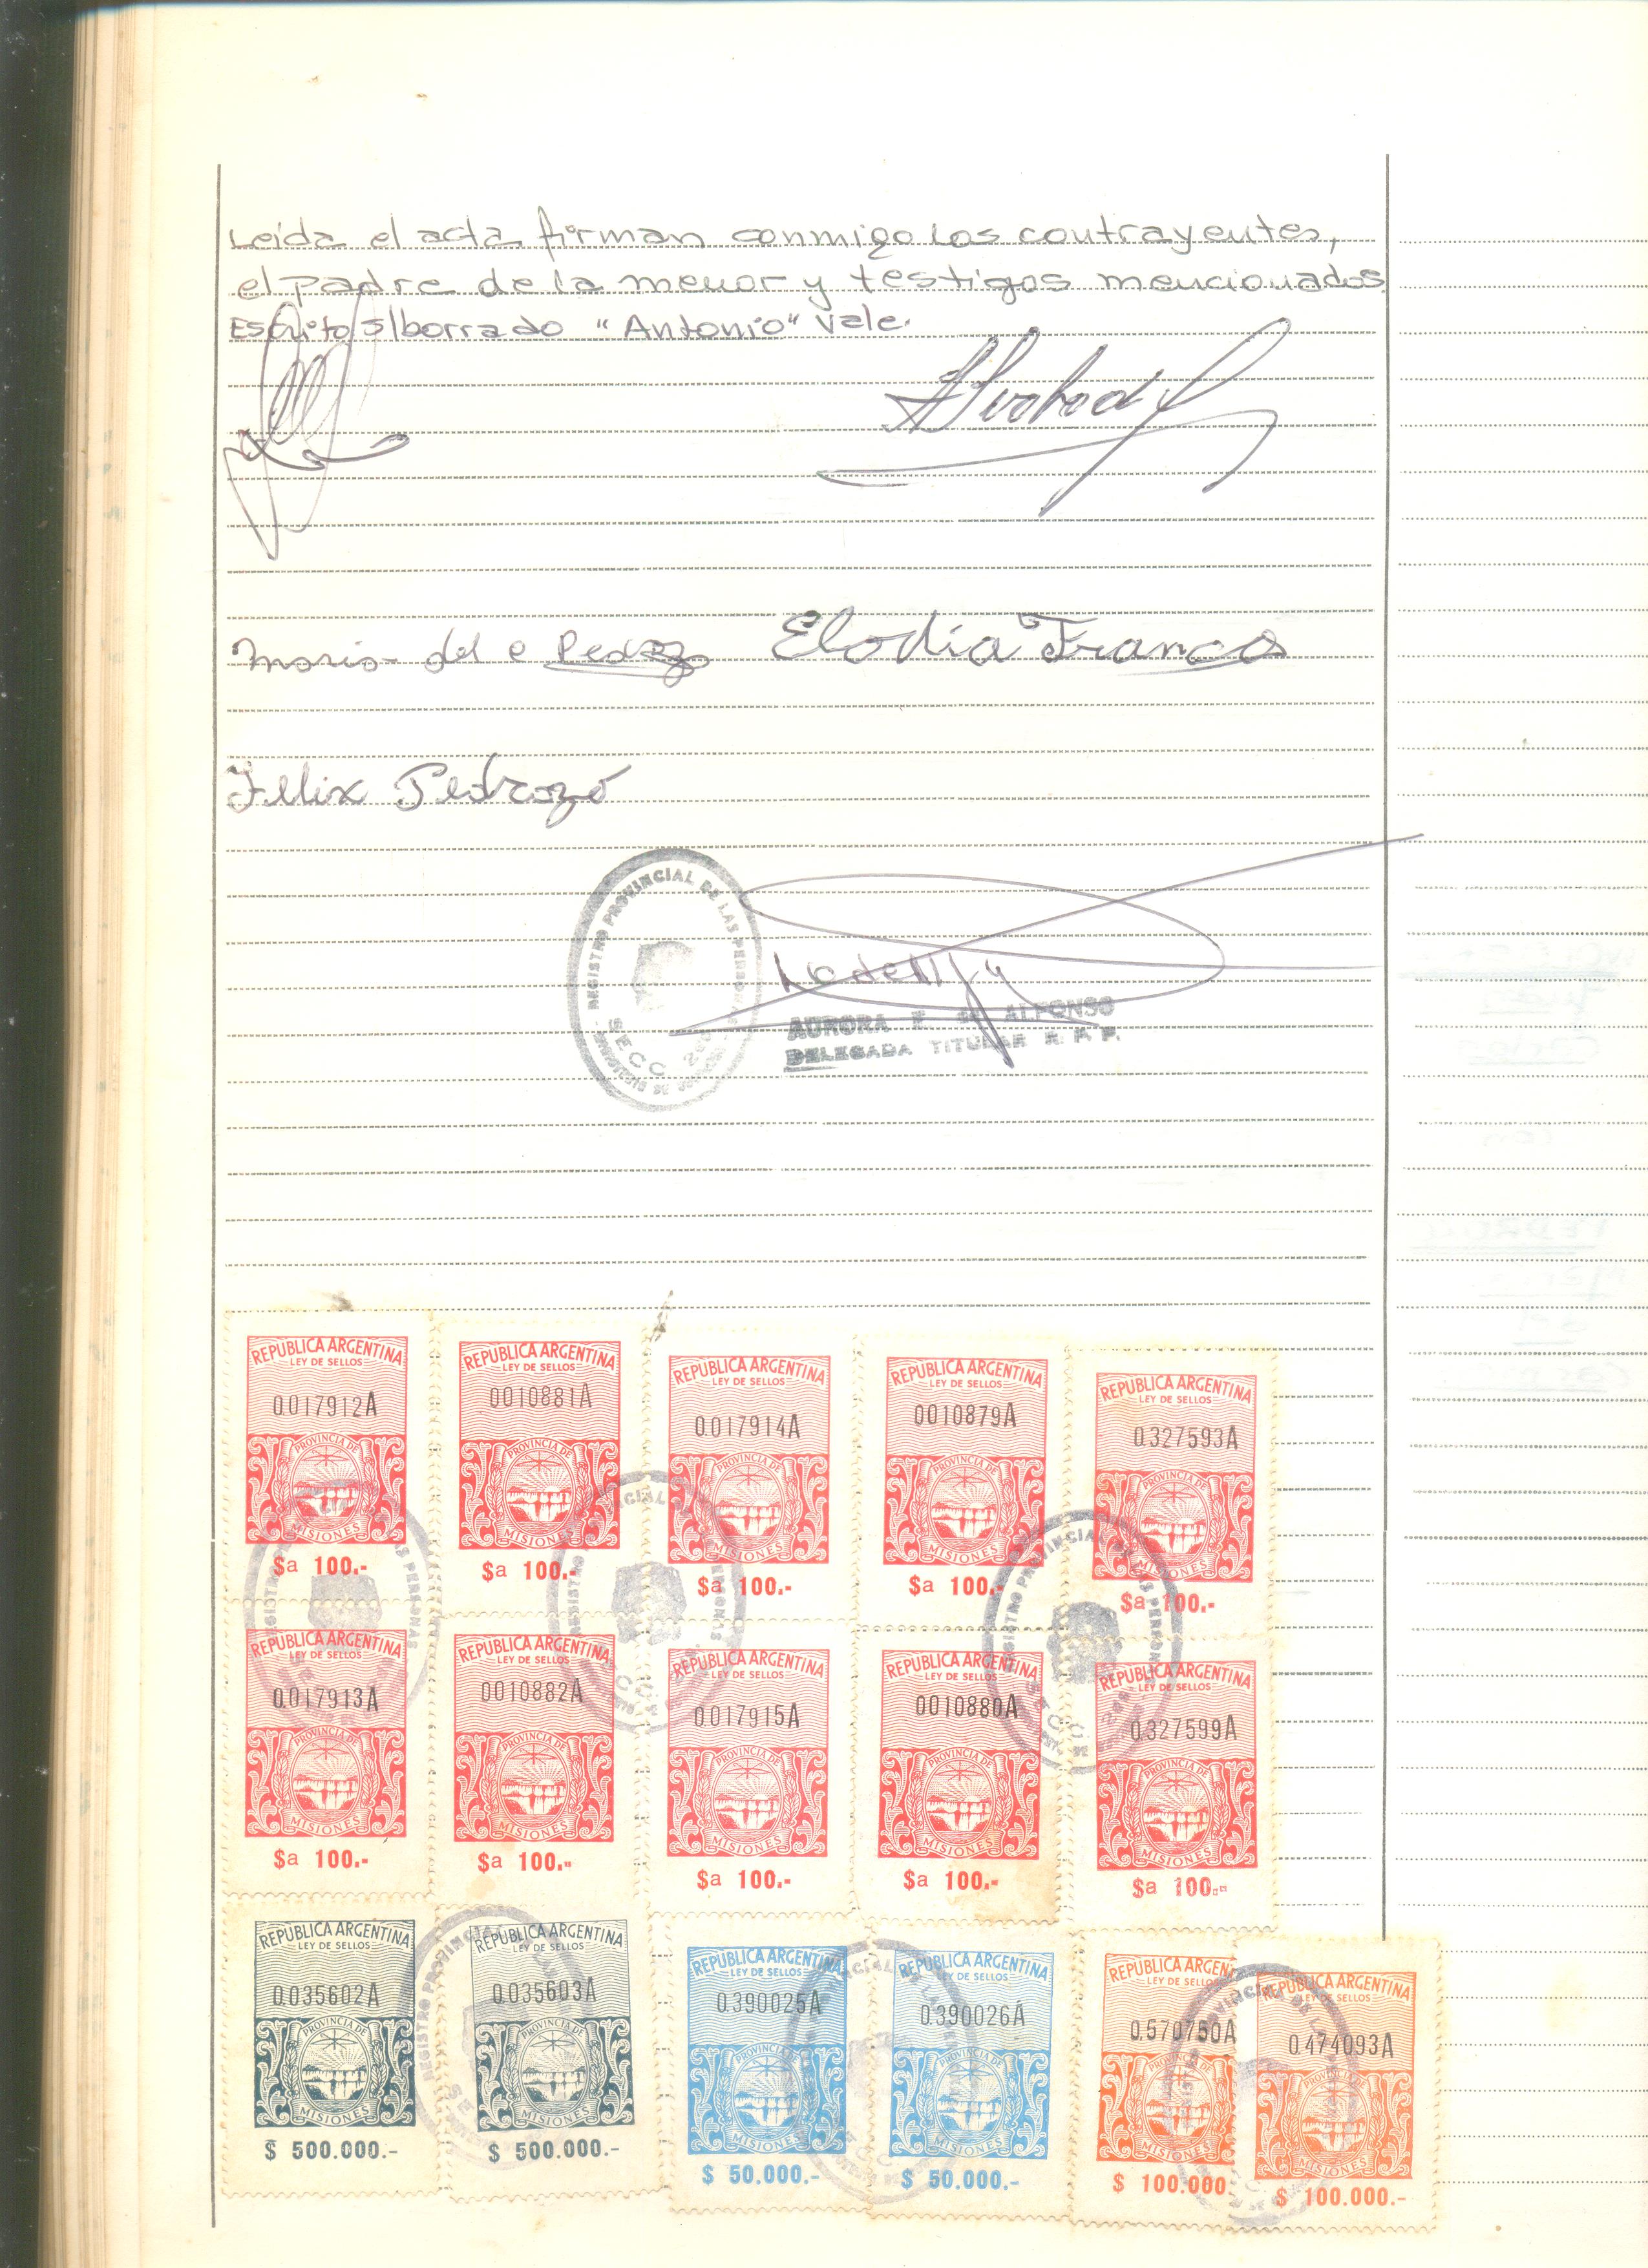 Leída el acta firman conmigo los contrayentes,
el padre de la menor y testigos mencionados.
Escrito s/borrado "Antonio" Vale.
Elodia Franco
Felix Pedrozo
REGISTRO PROVINCIAL DE LAS PERSONAS
SECC
AURORA E. de ALFONSO
DELEGADA TITULAR R. P. P.
REPUBLICA ARGENTINA
LEY DE SELLOS
0017912A
PROVINCIA DE
MISIONES
$a 100.-
REPUBLICA ARGENTINA
LEY DE SELLOS
0010881A
PROVINCIA DE
MISIONES
$a 100.-
REPUBLICA ARGENTINA
LEY DE SELLOS
0.017914A
PROVINCIA DE
MISIONES
$a 100.-
REPUBLICA ARGENTINA
LEY DE SELLOS
0010879A
PROVINCIA DE
MISIONES
$a 100.-
REPUBLICA ARGENTINA
LEY DE SELLOS
0.327593A
PROVINCIA DE
MISIONES
$a 100.-
REPUBLICA ARGENTINA
LEY DE SELLOS
0.017913A
PROVINCIA DE
MISIONES
$a 100.-
REPUBLICA ARGENTINA
LEY DE SELLOS
0010882A
PROVINCIA DE
MISIONES
$a 100.-
REPUBLICA ARGENTINA
LEY DE SELLOS
0.017915A
PROVINCIA DE
MISIONES
$a 100.-
REPUBLICA ARGENTINA
LEY DE SELLOS
0010880A
PROVINCIA DE
MISIONES
$a 100.-
REPUBLICA ARGENTINA
LEY DE SELLOS
0.327599A
PROVINCIA DE
MISIONES
$a 100.-
REPUBLICA ARGENTINA
LEY DE SELLOS
0.035602A
PROVINCIA DE
MISIONES
$ 500.000.-
REPUBLICA ARGENTINA
LEY DE SELLOS
0.035603A
PROVINCIA DE
MISIONES
$ 500.000.-
REPUBLICA ARGENTINA
LEY DE SELLOS
0.390025A
PROVINCIA DE
MISIONES
$ 50.000.-
REPUBLICA ARGENTINA
LEY DE SELLOS
0.390026A
PROVINCIA DE
MISIONES
$ 50.000.-
REPUBLICA ARGEN
LEY DE SELLOS
0.570750A
PROVINCIA
MISIONES
$ 100.000
REPUBLICA ARGENTINA
LEY DE SELLOS
0.474093A
PROVINCIA DE
MISIONES
$ 100.000.-